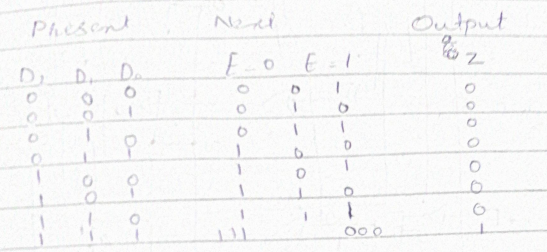 Present Next Output
D₂ D₁ D₀ E=0 E=1 Z
0 0 0 0 0 1 0
0 0 1 0 1 0 0
0 1 0 0 1 1 0
0 1 1 1 0 0 0
1 0 0 1 0 1 0
1 0 1 1 1 0 0
1 1 0 1 1 1 0
1 1 1 111 000 1